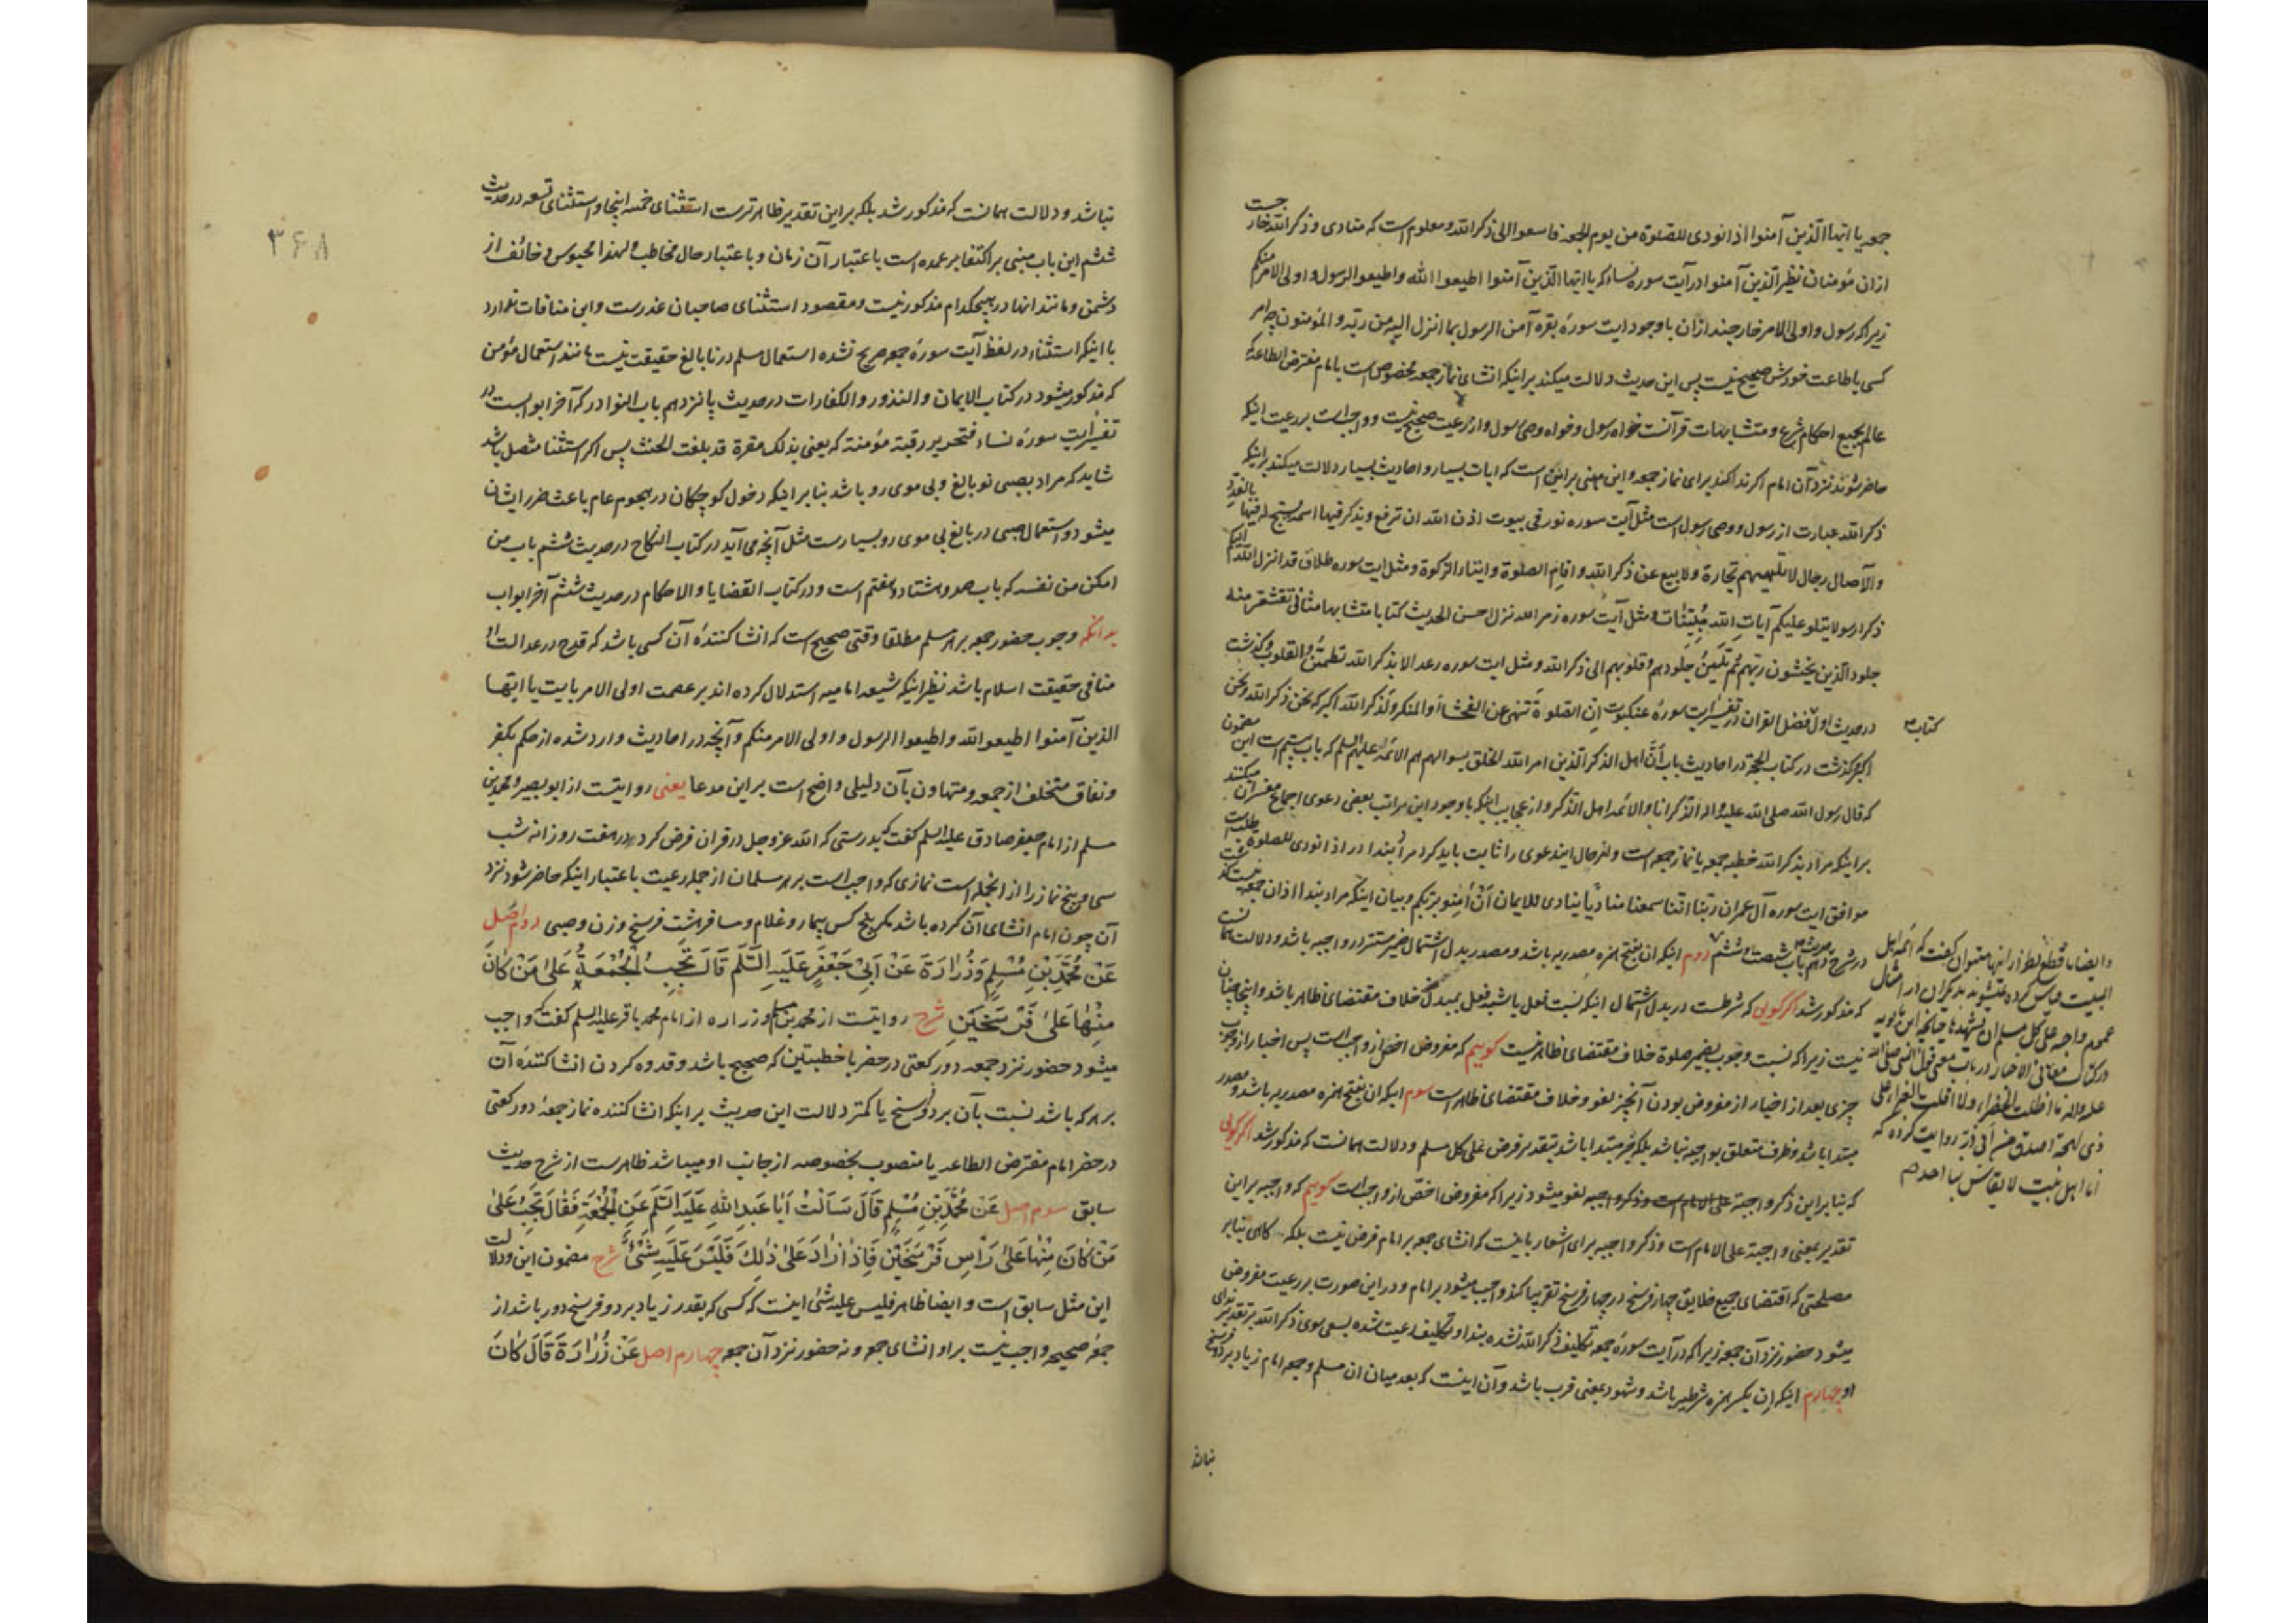 جمعه یا ایها الذین آمنوا اذا نودی للصلوة من یوم الجمعة فاسعوا الی ذکر الله و معلوم است که منادی و ذکر الله خارجست
ازان مؤمنان نظیر الذین آمنوا در آیت سوره نساء که یا ایها الذین آمنوا اطیعوا الله و اطیعوا الرسول و اولی الامر منکم
زیرا که رسول و اولی الامر خارجند ازان با وجود ایت سورهٔ بقره آمن الرسول بما انزل الیه من ربه و المؤمنون چه امر
کسی باطاعت خودش صحیح نیست پس این حدیث دلالت میکند بر اینکه انشای نماز جمعه مخصوص است بامام مفترض الطاعة که
عالم بجمیع احکام شرع و متشابهات قرآنست خواه رسول و خواه وصی رسول و از رعیت صحیح نیست و واجب است بر رعیت اینکه
حاضر شوند نزد آن امام اگر ندا کند برای نماز جمعه و این مبنی بر اینست که ایات بسیار و احادیث بسیار دلالت میکند بر اینکه
ذکر الله عبارت از رسول و وصی رسول است مثل آیت سوره نور فی بیوت اذن الله ان ترفع و یذکر فیها اسمه یسبح له فیها بالغدو
والآصال رجال لا تلهیهم تجارة ولا بیع عن ذکر الله و اقام الصلوة و ایتاء الزکوة و مثل ایت سوره طلاق قد انزل الله الیکم
ذکرا رسولا یتلو علیکم آیات الله مبینات و مثل آیت سوره زمر الله نزل احسن الحدیث کتابا متشابها مثانی تقشعر منه
جلود الذین یخشون ربهم ثم تلین جلودهم و قلوبهم الی ذکر الله و مثل ایت سوره رعد الا بذکر الله تطمئن القلوب و گذشت
در حدیث اول فضل القران در تفسیر ایت سورهٔ عنکبوت ان الصلوة تنهی عن الفحشاء والمنکر ولذکر الله اکبر که نحن ذکر الله و نحن
کتاب
اکبر و گذشت در کتاب الحجة در احادیث باب ان اهل الذکر الذین امر الله الخلق بسؤالهم هم الائمة علیهم السلم که باب بیستم است این مضمون
که قال رسول الله صلی الله علیه و اله الذکر انا والائمة اهل الذکر و از عجایب اینکه با وجود این مراتب بعضی دعوی اجماع مفسران میکنند
بر اینکه مراد بذکر الله خطبه جمعه یا نماز جمعه است و لهر حال ایندعوی را ثابت باید کرد مراد بندا در اذا نودی للصلوة
موافق ایت سوره آل عمران ربنا اننا سمعنا منادیا ینادی للایمان ان آمنوا بربکم و بیان اینکه مراد بندا اذان جمعه نیست گذشت
در شرح حدیث دهم باب شصت و ششم دوم اینکه ان بفتح همزه مصدریه باشد و مصدر بدل اشتمال ضمیر مستتر در واجبه باشد و دلالت همانست
که مذکور شد اگر گویی که شرطست در بدل اشتمال اینکه نسبت فعل یا شبه فعل بمبدل منه خلاف مقتضای ظاهر باشد و اینجا چنان
نیست زیرا که نسبت وجوب بضمیر صلوة خلاف مقتضای ظاهر نیست گوییم که مفروض اخص از واجب است پس اخبار از وجوب
چیزی بعد از اخبار از مفروض بودن آنچیز لغو و خلاف مقتضای ظاهر است سوم اینکه ان بفتح همزه مصدریه باشد و مصدر
مبتدا باشد و ظرف متعلق بواجبه نباشد بلکه خبر مبتدا باشد بتقدیر فرض علی کل مسلم و دلالت همانست که مذکور شد اگر گویی
که بنابراین ذکر واجبة علی الامام است و ذکر واجبه لغو میشود زیرا که مفروض اخص از واجب است گوییم که واجبه بر این
تقدیر بمعنی واجبة علی الامام است و ذکر واجبه برای اشعار باینست که انشای جمعه بر امام فرض نیست بلکه گاهی بنابر
مصلحتی که اقتضای جمیع خلایق چهار فرسخ در چهار فرسخ تقریبا کند واجب میشود بر امام و در این صورت بر رعیت مفروض
میشود حضور نزد آن جمعه زیرا که در آیت سورهٔ جمعه تکلیف ذکر الله نشده بندا و تکلیف رعیت شده بسعی سوی ذکر الله بر تقدیر ندای
او چهارم اینکه ان بکسر همزه شرطیه باشد و شهود بمعنی قرب باشد و آن اینست که بعد میان ان مسلم و جمعه امام زیاد بر دو فرسخ
نباشد
و ایضا با قطع نظر از اینها میتوان گفت که ائمه اهل
البیت قیاس کرده نمیشوند بدیگران در امثال
عموم واجبة علی کل مسلم ان یشهدها چنانچه ابن بابویه
در کتاب معانی الاخبار در باب معنی قول النبی صلی الله
علیه واله ما اظلت الخضراء ولا اقلت الغبراء علی
ذی لهجة اصدق من ابی ذر روایت کرده که
انا اهل بیت لا یقاس بنا احد
۳۶۸
نباشد و دلالت همانست که مذکور شد بلکه بر این تقدیر ظاهرترست استثنای خمسه اینجا و استثنای تسعه در حدیث
ششم این باب مبنی بر اکتفا بر عمده است باعتبار آن زمان و باعتبار حال مخاطب و لهذا محبوس و خائف از
دشمن و مانند انها در هیچکدام مذکور نیست و مقصود استثنای صاحبان عذرست و این منافات ندارد
با اینکه استثناء در لفظ آیت سورهٔ جمعه صریح نشده استعمال مسلم در نابالغ حقیقت نیست مانند استعمال مؤمن
که مذکور میشود در کتاب الایمان والنذور والکفارات در حدیث پانزدهم باب النوادر که آخر ابوابست در
تفسیر ایت سورهٔ نساء فتحریر رقبة مؤمنة که یعنی بذلک مقرة قد بلغت الحنث پس اگر استثنا متصل باشد
شاید که مراد بصبی نوبالغ و بی موی رو باشد بنابر اینکه دخول کوچکان در هجوم عام باعث ضرر ایشان
میشود و استعمال صبی در بالغ بی موی رو بسیارست مثل آنچه می آید در کتاب النکاح در حدیث ششم باب من
امکن من نفسه که باب صد و هشتاد و هفتم است و در کتاب القضایا و الاحکام در حدیث ششم آخر ابواب
بدانکه وجوب حضور جمعه بر هر مسلم مطلقا وقتی صحیح است که انشا کنندهٔ آن کسی باشد که قدح در عدالت او
منافی حقیقت اسلام باشد نظیر اینکه شیعه امامیه استدلال کرده اند بر عصمت اولی الامر بایت یا ایها
الذین آمنوا اطیعوا الله و اطیعوا الرسول و اولی الامر منکم و آنچه در احادیث وارد شده از حکم بکفر
و نفاق متخلف از جمعه و متهاون بآن دلیلی واضح است بر این مدعا یعنی روایتست از ابو بصیر و محمد بن
مسلم از امام جعفر صادق علیه السلم گفت که بدرستی که الله عز و جل در قران فرض کرد در هفت روزانه شب
سی و پنج نماز را از انجمله است نمازی که واجب است بر هر مسلمان از جمله رعیت باعتبار اینکه حاضر شود نزد
آن چون امام انشای آن کرده باشد مگر پنج کس بیمار و غلام و مسافر هشت فرسخ و زن و صبی دوم اصل
عَنْ مُحَمَّدِ بْنِ مُسْلِمٍ وَزُرَارَةَ عَنْ أَبِي جَعْفَرٍ عَلَيْهِ السَّلَمُ قَالَ تَجِبُ الْجُمُعَةُ عَلَى مَنْ كَانَ
مِنْهَا عَلَى فَرْسَخَيْنِ شرح روایتست از محمد بن مسلم و زراره از امام محمد باقر علیه السلم گفت که واجب
میشود حضور نزد جمعه دو رکعتی در حضر با خطبتین که صحیح باشد و قدوه کردن انشا کنندهٔ آن
بر هر که باشد نسبت بآن بر دو فرسخ یا کمتر دلالت این حدیث بر اینکه انشا کننده نماز جمعهٔ دو رکعتی
در حضر امام مفترض الطاعه یا منصوب بخصوصه از جانب او میباشد ظاهرست از شرح حدیث
سابق سوم اصل عَنْ مُحَمَّدِ بْنِ مُسْلِمٍ قَالَ سَأَلْتُ أَبَا عَبْدِ اللهِ عَلَيْهِ السَّلَمُ عَنِ الْجُمُعَةِ فَقَالَ تَجِبُ عَلَى
مَنْ كَانَ مِنْهَا عَلَى رَأْسِ فَرْسَخَيْنِ فَإِذَا زَادَ عَلَى ذٰلِكَ فَلَيْسَ عَلَيْهِ شَيْءٌ شرح مضمون این و دلالت
این مثل سابق است و ایضا ظاهر فلیس علیه شئ اینست که کسی که بقدر زیاد بر دو فرسخ دور باشد از
جمعهٔ صحیحه واجب نیست بر او انشای جمعه و نه حضور نزد آن جمعه چهارم اصل عَنْ زُرَارَةَ قَالَ كَانَ